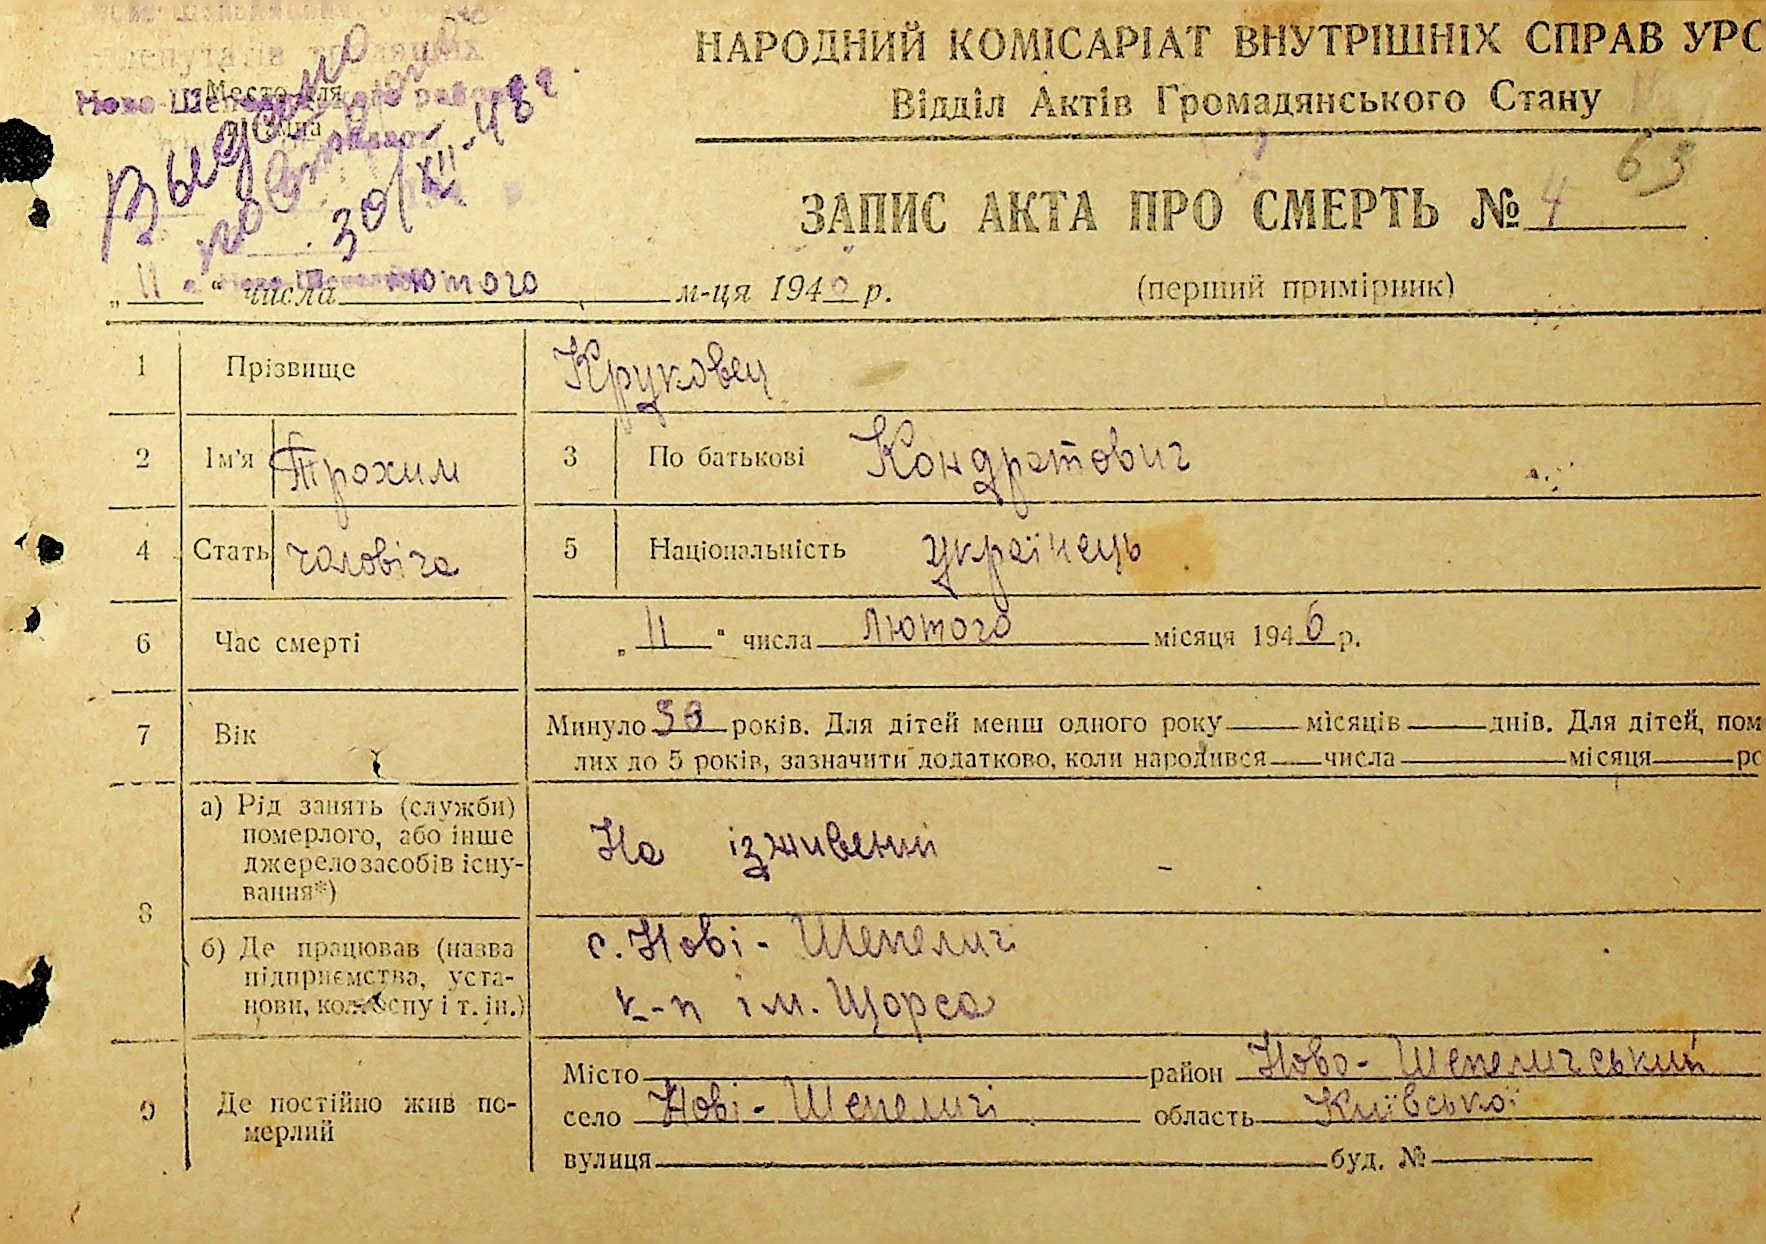 депутатів трудящих
Место для
НАРОДНИЙ КОМІСАРІАТ ВНУТРІШНІХ СПРАВ УРС
Відділ Актів Громадянського Стану
Выдано
повторно
30/XII-48 г.
63
ЗАПИС АКТА ПРО СМЕРТЬ № 4
„11“ числа лютого м-ця 1946 р. (перший примірник)
1 Прізвище Круковец
2 Ім'я Трохим 3 По батькові Кондратович
4 Стать чоловіча 5 Національність українець
6 Час смерті „11“ числа лютого місяця 1946 р.
7 Вік Минуло років. Для дітей менш одного року місяців днів. Для дітей, пом
лих до 5 років, зазначити додатково, коли народився числа місяця ро
8 а) Рід занять (служби)
померлого, або інше
джерело засобів існу-
вання*)
На іждивенні
б) Де працював (назва
підприємства, уста-
нови, колгоспу і т. ін.)
с. Нові-Шепеличі
к-п ім. Щорса
9 Де постійно жив по-
мерлий
Місто район Ново-Шепеличський
село Нові-Шепеличі область Київської
вулиця буд. №